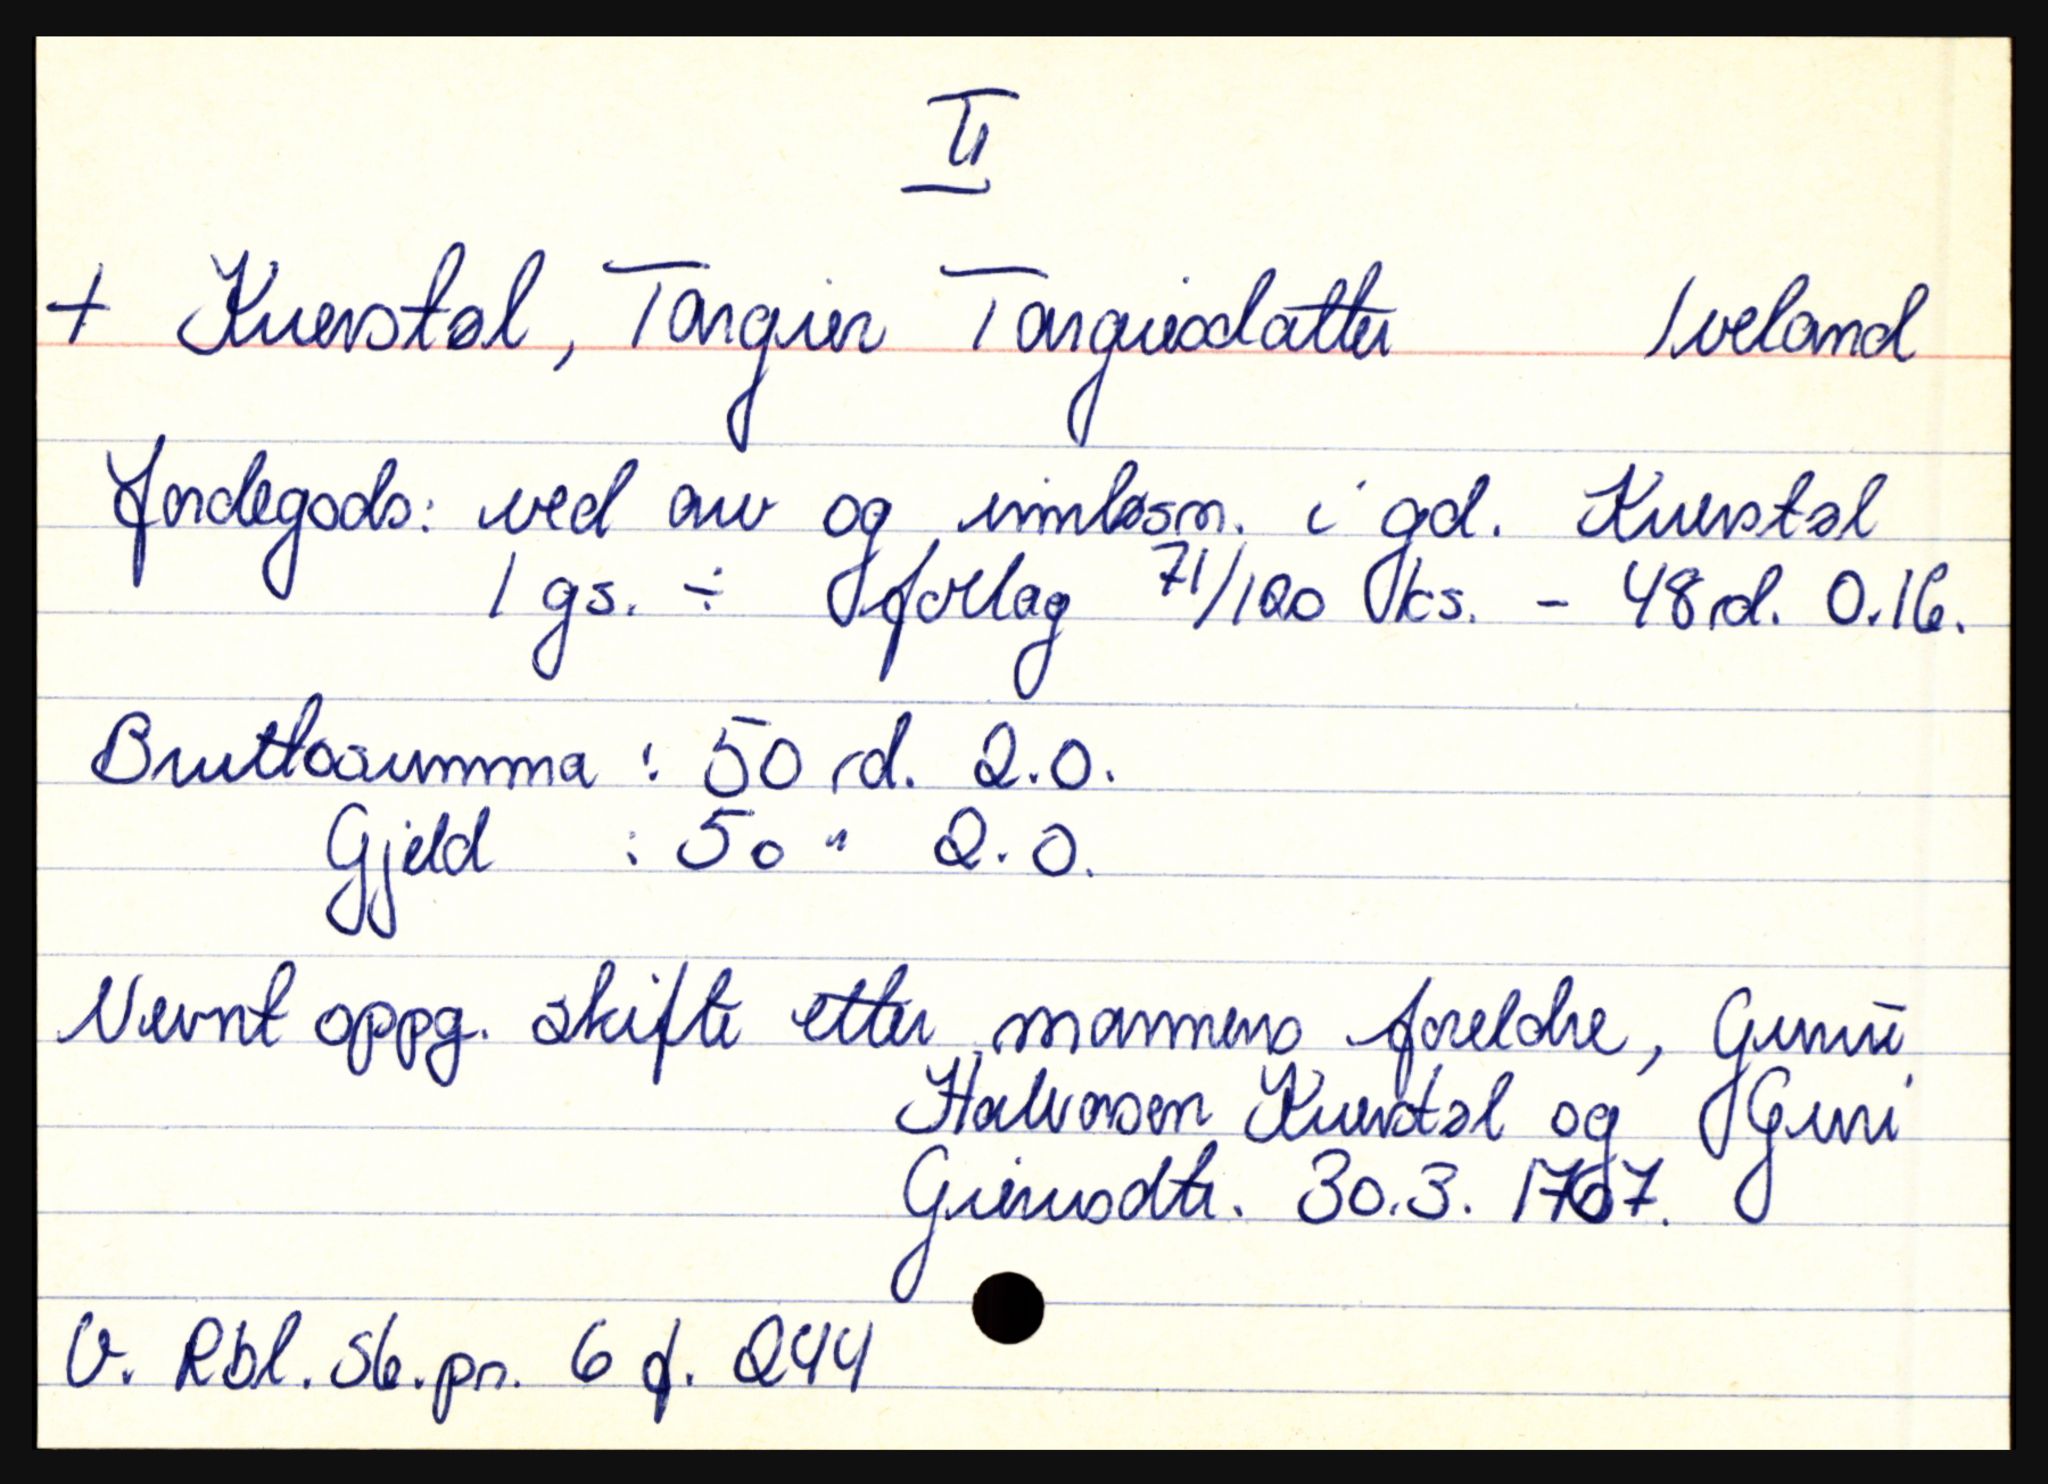 II
+ Kverstøl, Torgier Torgiersdatter Iveland
Jordegods: ved arv og innløsn. i gd. Kverstøl
1 gs. ÷ forlag 71/120 ks. - 48 rd. 0.16.
Bruttosumma : 50 rd. 2.0.
Gjeld : 50 " 2.0.
Nevnt oppg. skifte etter mannens foreldre, Gunni
Halvorsen Kverstøl og Guri
1767.
V. Rbl. Sk.pr. 6 f. 244